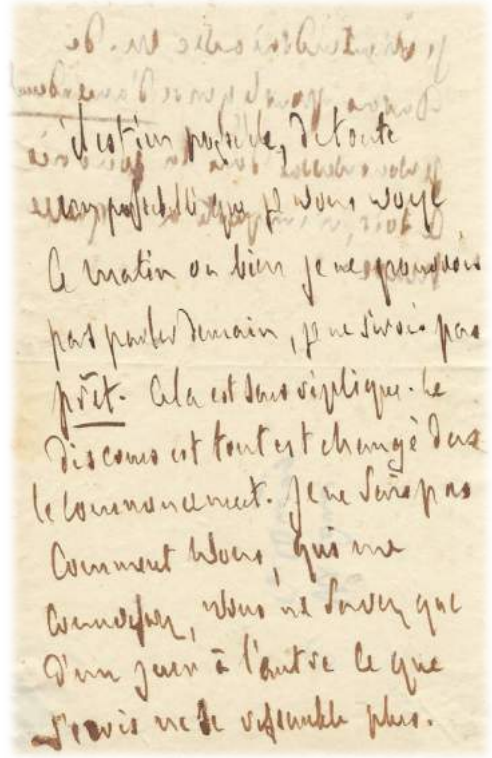 il est impossible, de toute
impossibilité que je vous voye
ce matin ou bien je ne pourrois
pas parler demain, je ne serois pas
prêt. Cela est sans réplique. Le
discours est tout est changé dans
le commencement. Je ne sais pas
comment vous, qui me
connoissez, vous ne savez que
d'un jour à l'autre ce que
j'écris ne se ressemble plus.